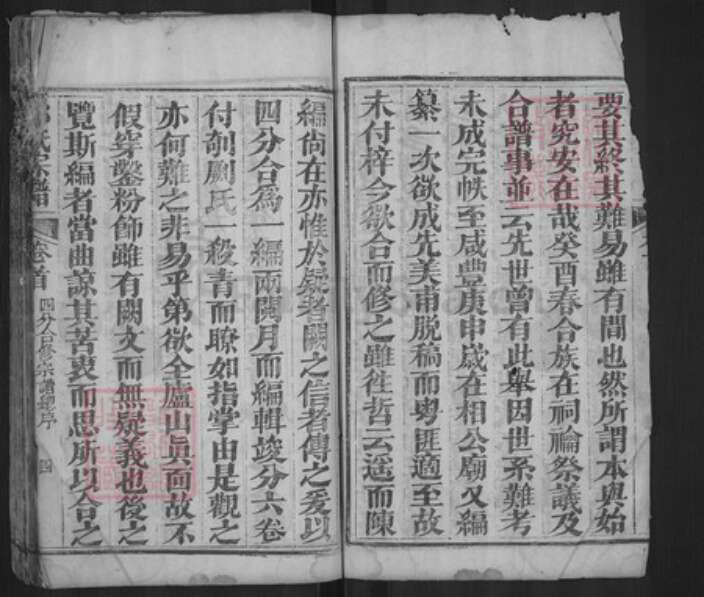 要其終其難易雖有間也然所謂本與始
者究安在哉癸酉春合族在祠禴祭議及
合譜事並云先世曾有此舉因世系難考
未成完帙至咸豐庚申歲在相公廟又編
纂一次欲成先美甫脫稿而粵匪適至故
未付梓今欲合而修之雖徃哲云遥而陳
編尙在亦惟於疑者闕之信者傳之爰以
四分合爲一編兩閱月而編輯竣分六卷
付剞劂氏一殺青而瞭如指掌由是觀之
亦何難之非易乎第欲全廬山眞面故不
假穿鑿粉飾雖有闕文而無疑義也後之
覽斯編者當曲諒其苦衷而思所以合之
氏宗譜
卷首
四分合修宗譜總序
四